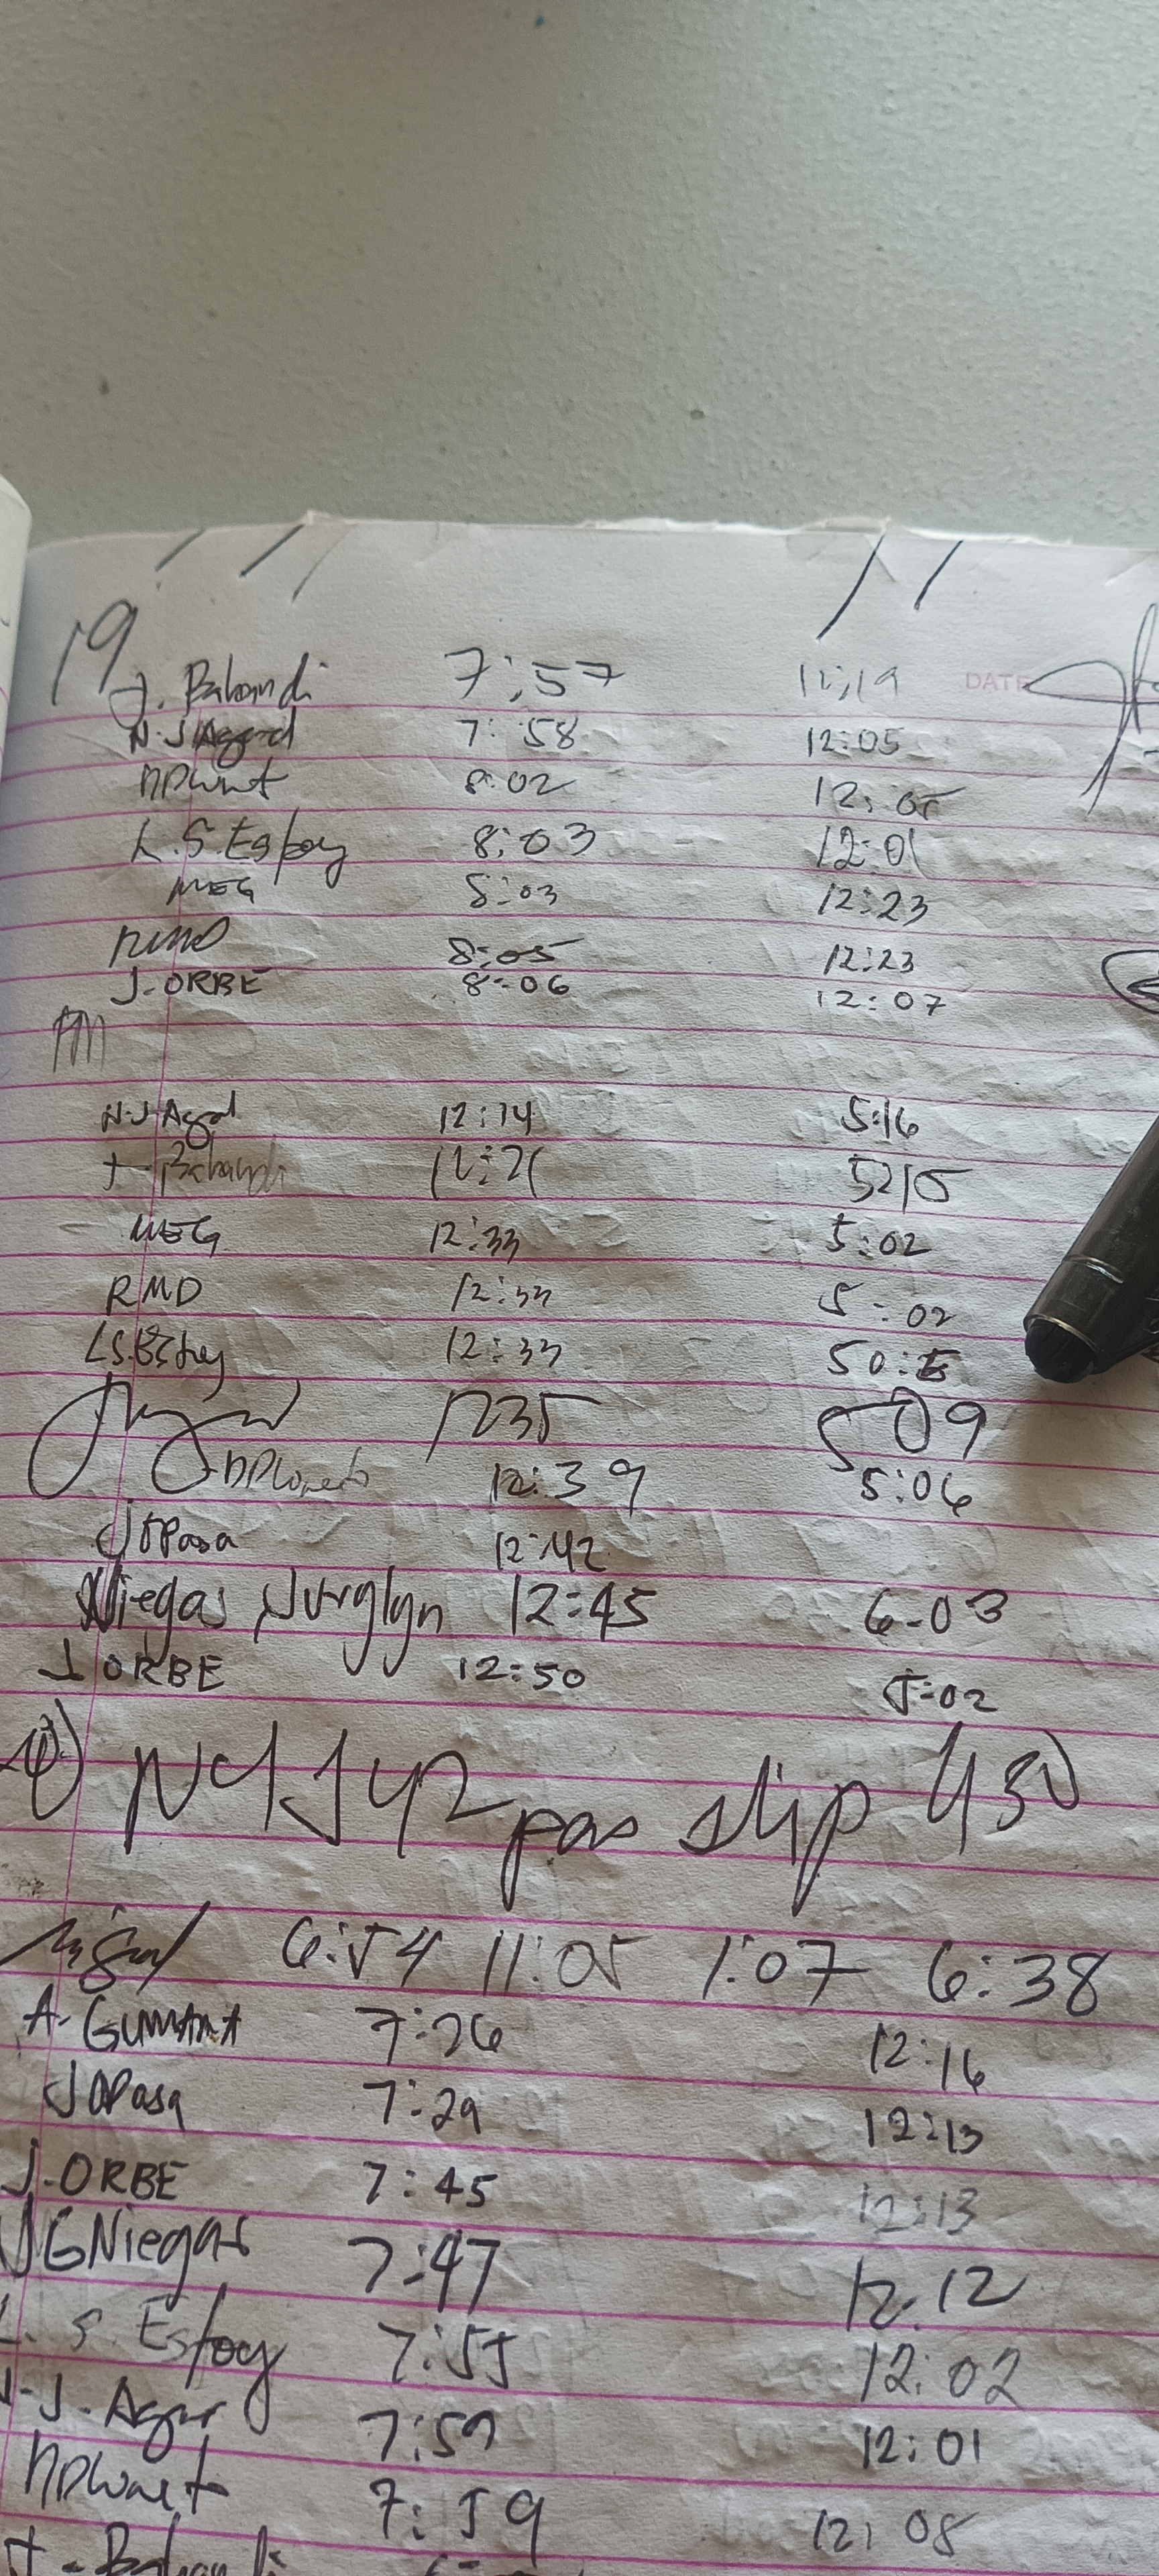 19
J. Bahandi 7:57 12:19 DATE
N.J Agad 7:58 12:05
8:02 12:05
L.S.Estoy 8:03 12:01
MEG 8:03 12:23
RMD 8:05 12:23
J.ORBE 8:06 12:07
PM
N.J Agad 12:14 5:16
J. Bahandi 12:21 5:15
MEG 12:33 5:02
RMD 12:33 5:02
L.S.Estoy 12:33 50:5
1235 509
12:39 5:06
JOPasa 12:42
Niegas, Jurglyn 12:45 6-03
J ORBE 12:50 5:02
pas slip 430
6:54 11:05 1:07 6:38
A. GUMANA 7:26 12:16
JOPasa 7:29 12:13
J.ORBE 7:45 12:13
JGNiegas 7:47 12:12
L. S. Estoy 7:55 12:02
N.J. Agad 7:59 12:01
7:59 12:08
J. Bahandi